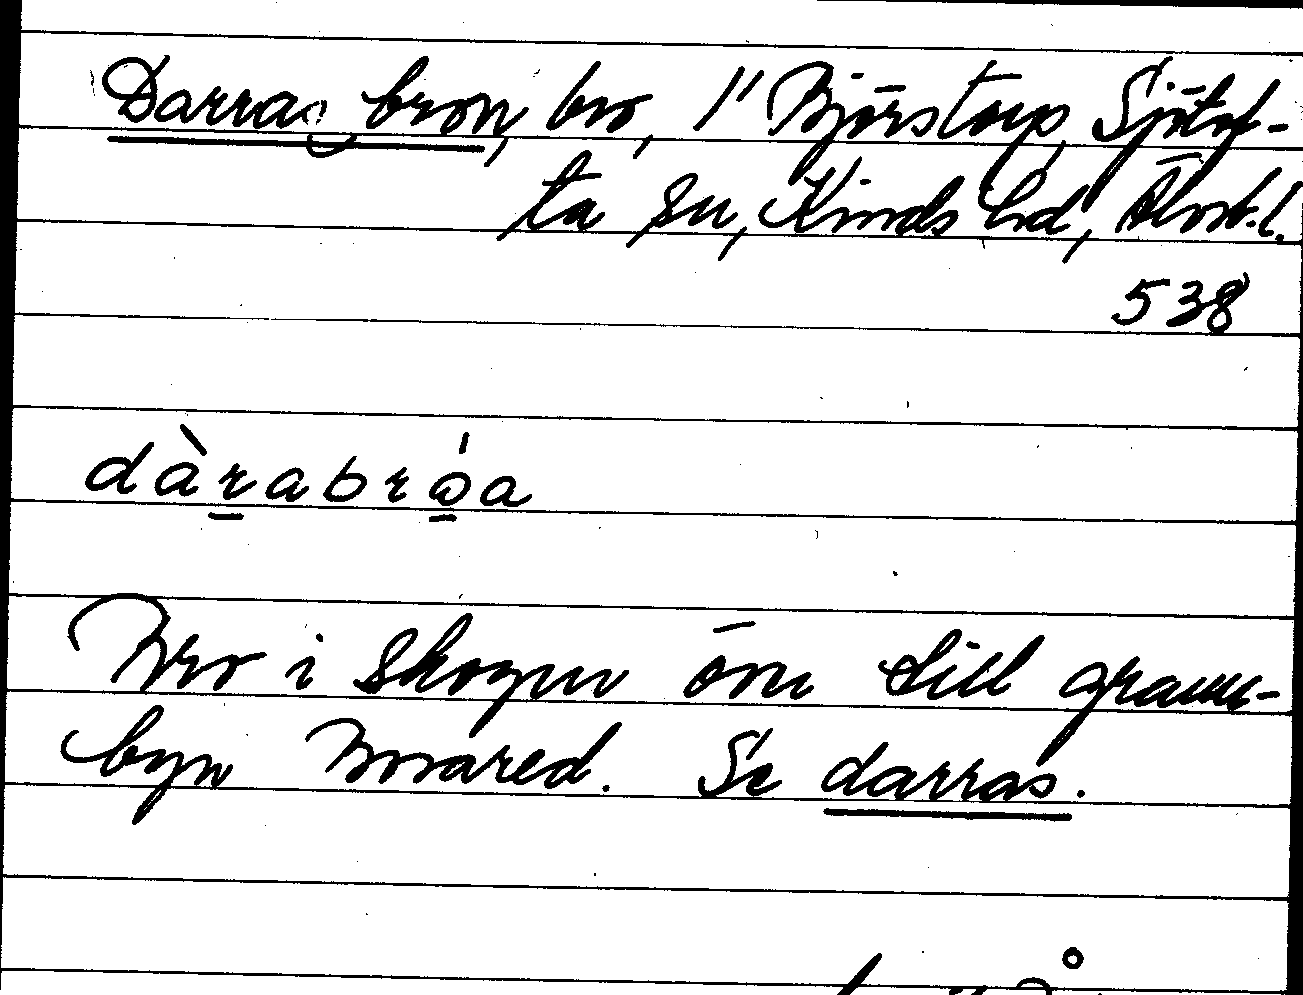 Darras bron, bro, 1" Björstorp, Sjötof-
ta sn, Kinds hd, Älvsb. l.
538
dàrabróa
Bro i skogen öm till grann-
byn Boarred. Se darras.